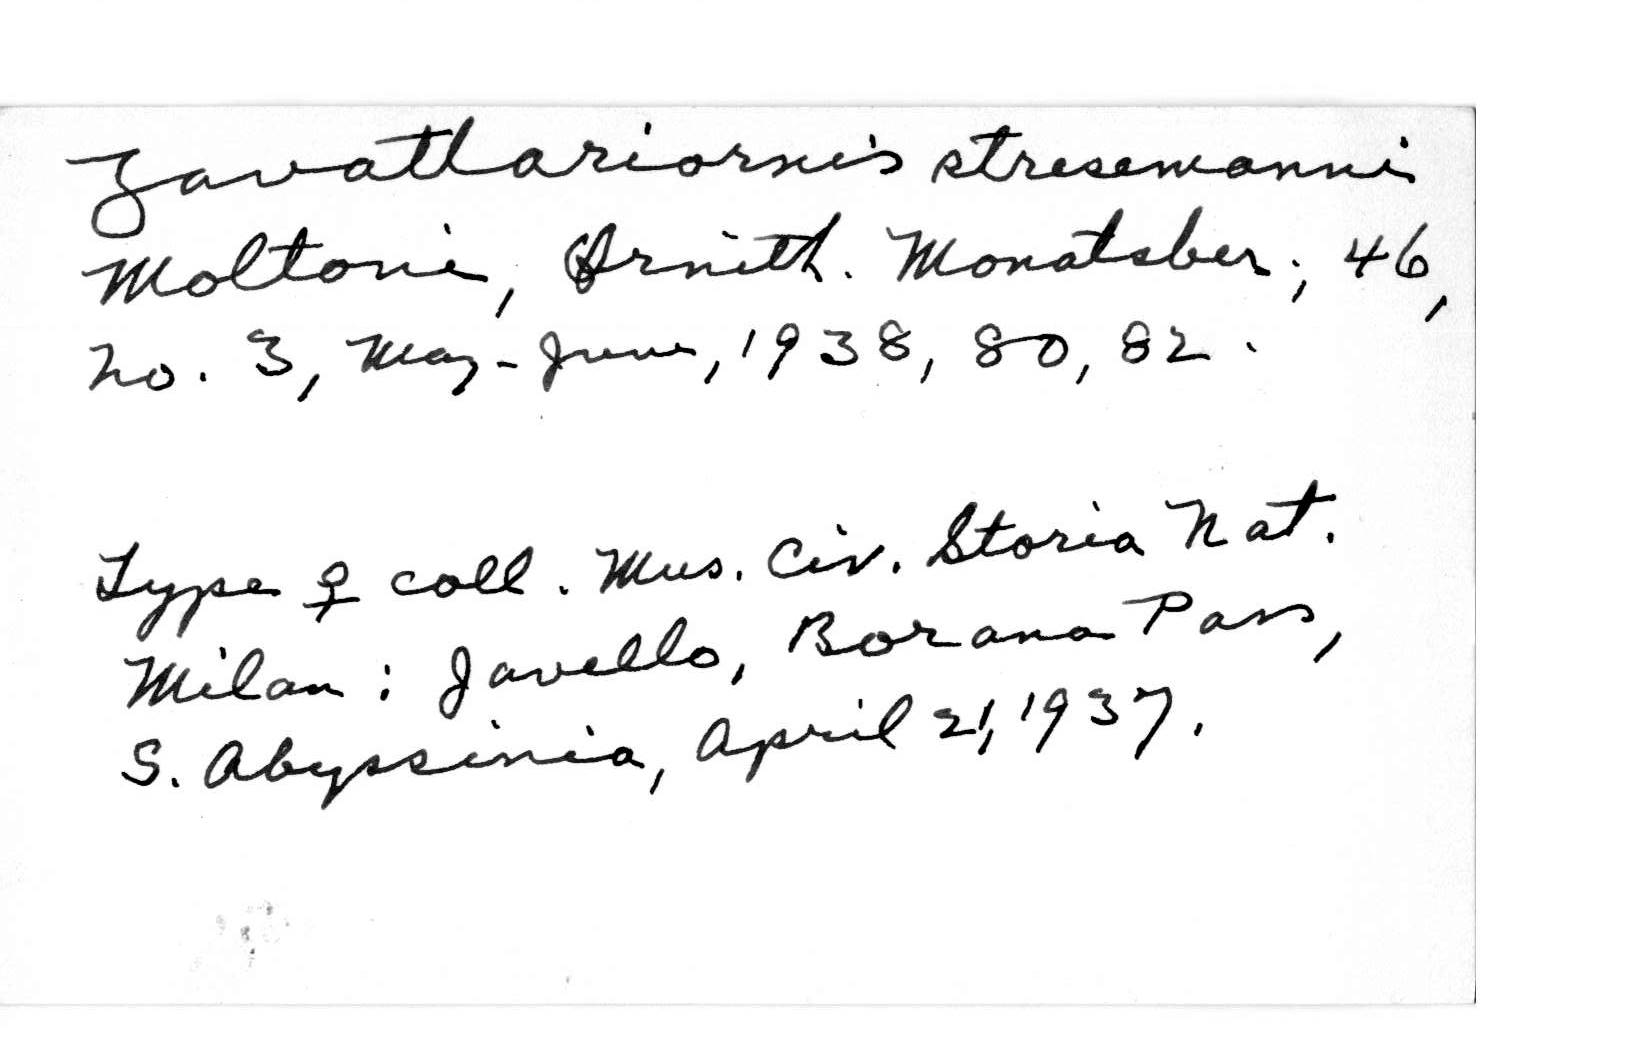 Zavattariornis stresemanni
Moltoni, Ornith. Monatsber., 46,
no. 3, May-June, 1938, 80, 82.
Type ♀ coll. Mus. Civ. Storia Nat.
Milan: Javello, Borana Pass,
S. Abyssinia, April 21, 1937.